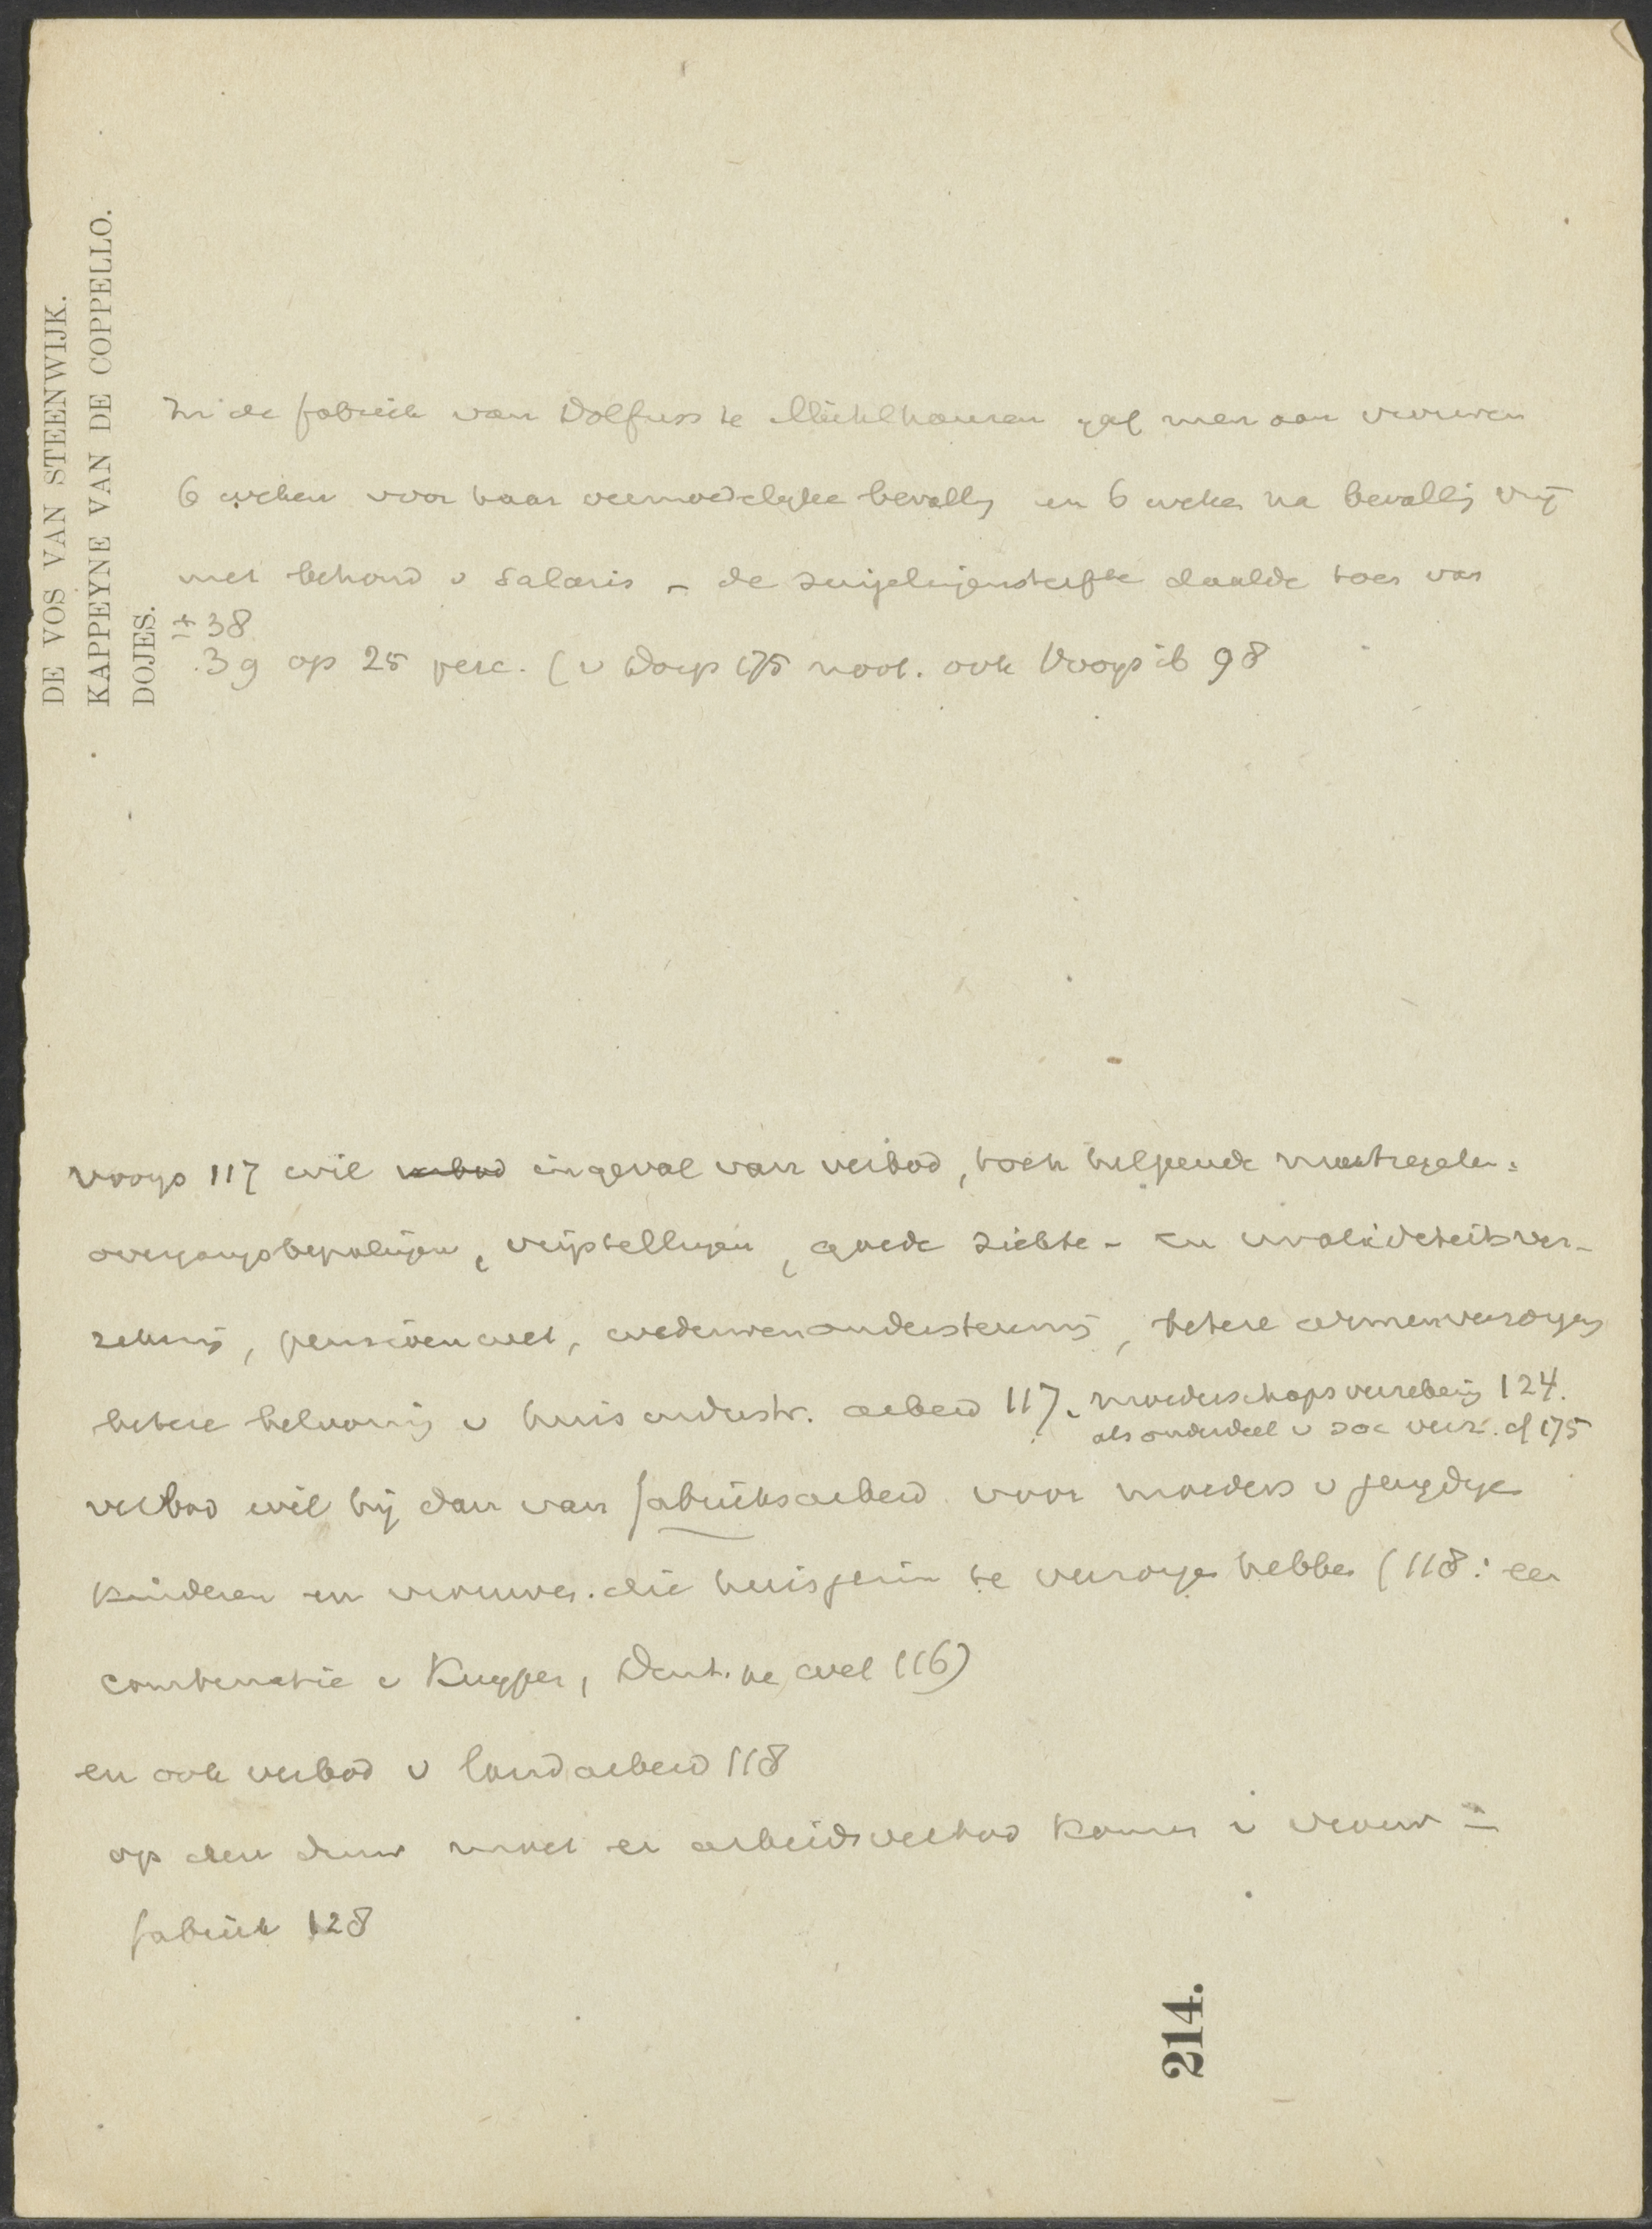 DE VOS VAN STEENWIJK.
KAPPEYNE VAN DE COPPELLO.
DOJES.
In de fabriek van Dolfuss te Mühlhausen gaf men aan vrouwen
6 weken voor haar vermoedelijke bevallg en 6 weken na bevallig vrij
met behoud v salaris – de zuigelingensterfte daalde toen van
± 38
39 op 25 perc. (v Dorp 175 noot. ook Vooys ib 98
Vooys 117 wil verbod ingeval van verbod, toch helpende maatregelen:
overgangsbepalingen, vrijstellingen, goede ziekte- en invaliditeitsver-
zekering, pensioenwet, weduwenondersteuning, betere armenverzorging
betere belooning v huisindustr. arbeid 117. moederschapsverzekerig 124.
als onderdeel v soc verz. cf 175
verbod wil hij dan van fabrieksarbeid voor moeders v jeugdige
kinderen en vrouwen die huisgezin te verzorgen hebben (118: een
combinatie v Kuyper, wel 116)
en ook verbod v landarbeid 118
op den duur moet er arbeidsverbod komen v vrouw in
fabriek 128
214.